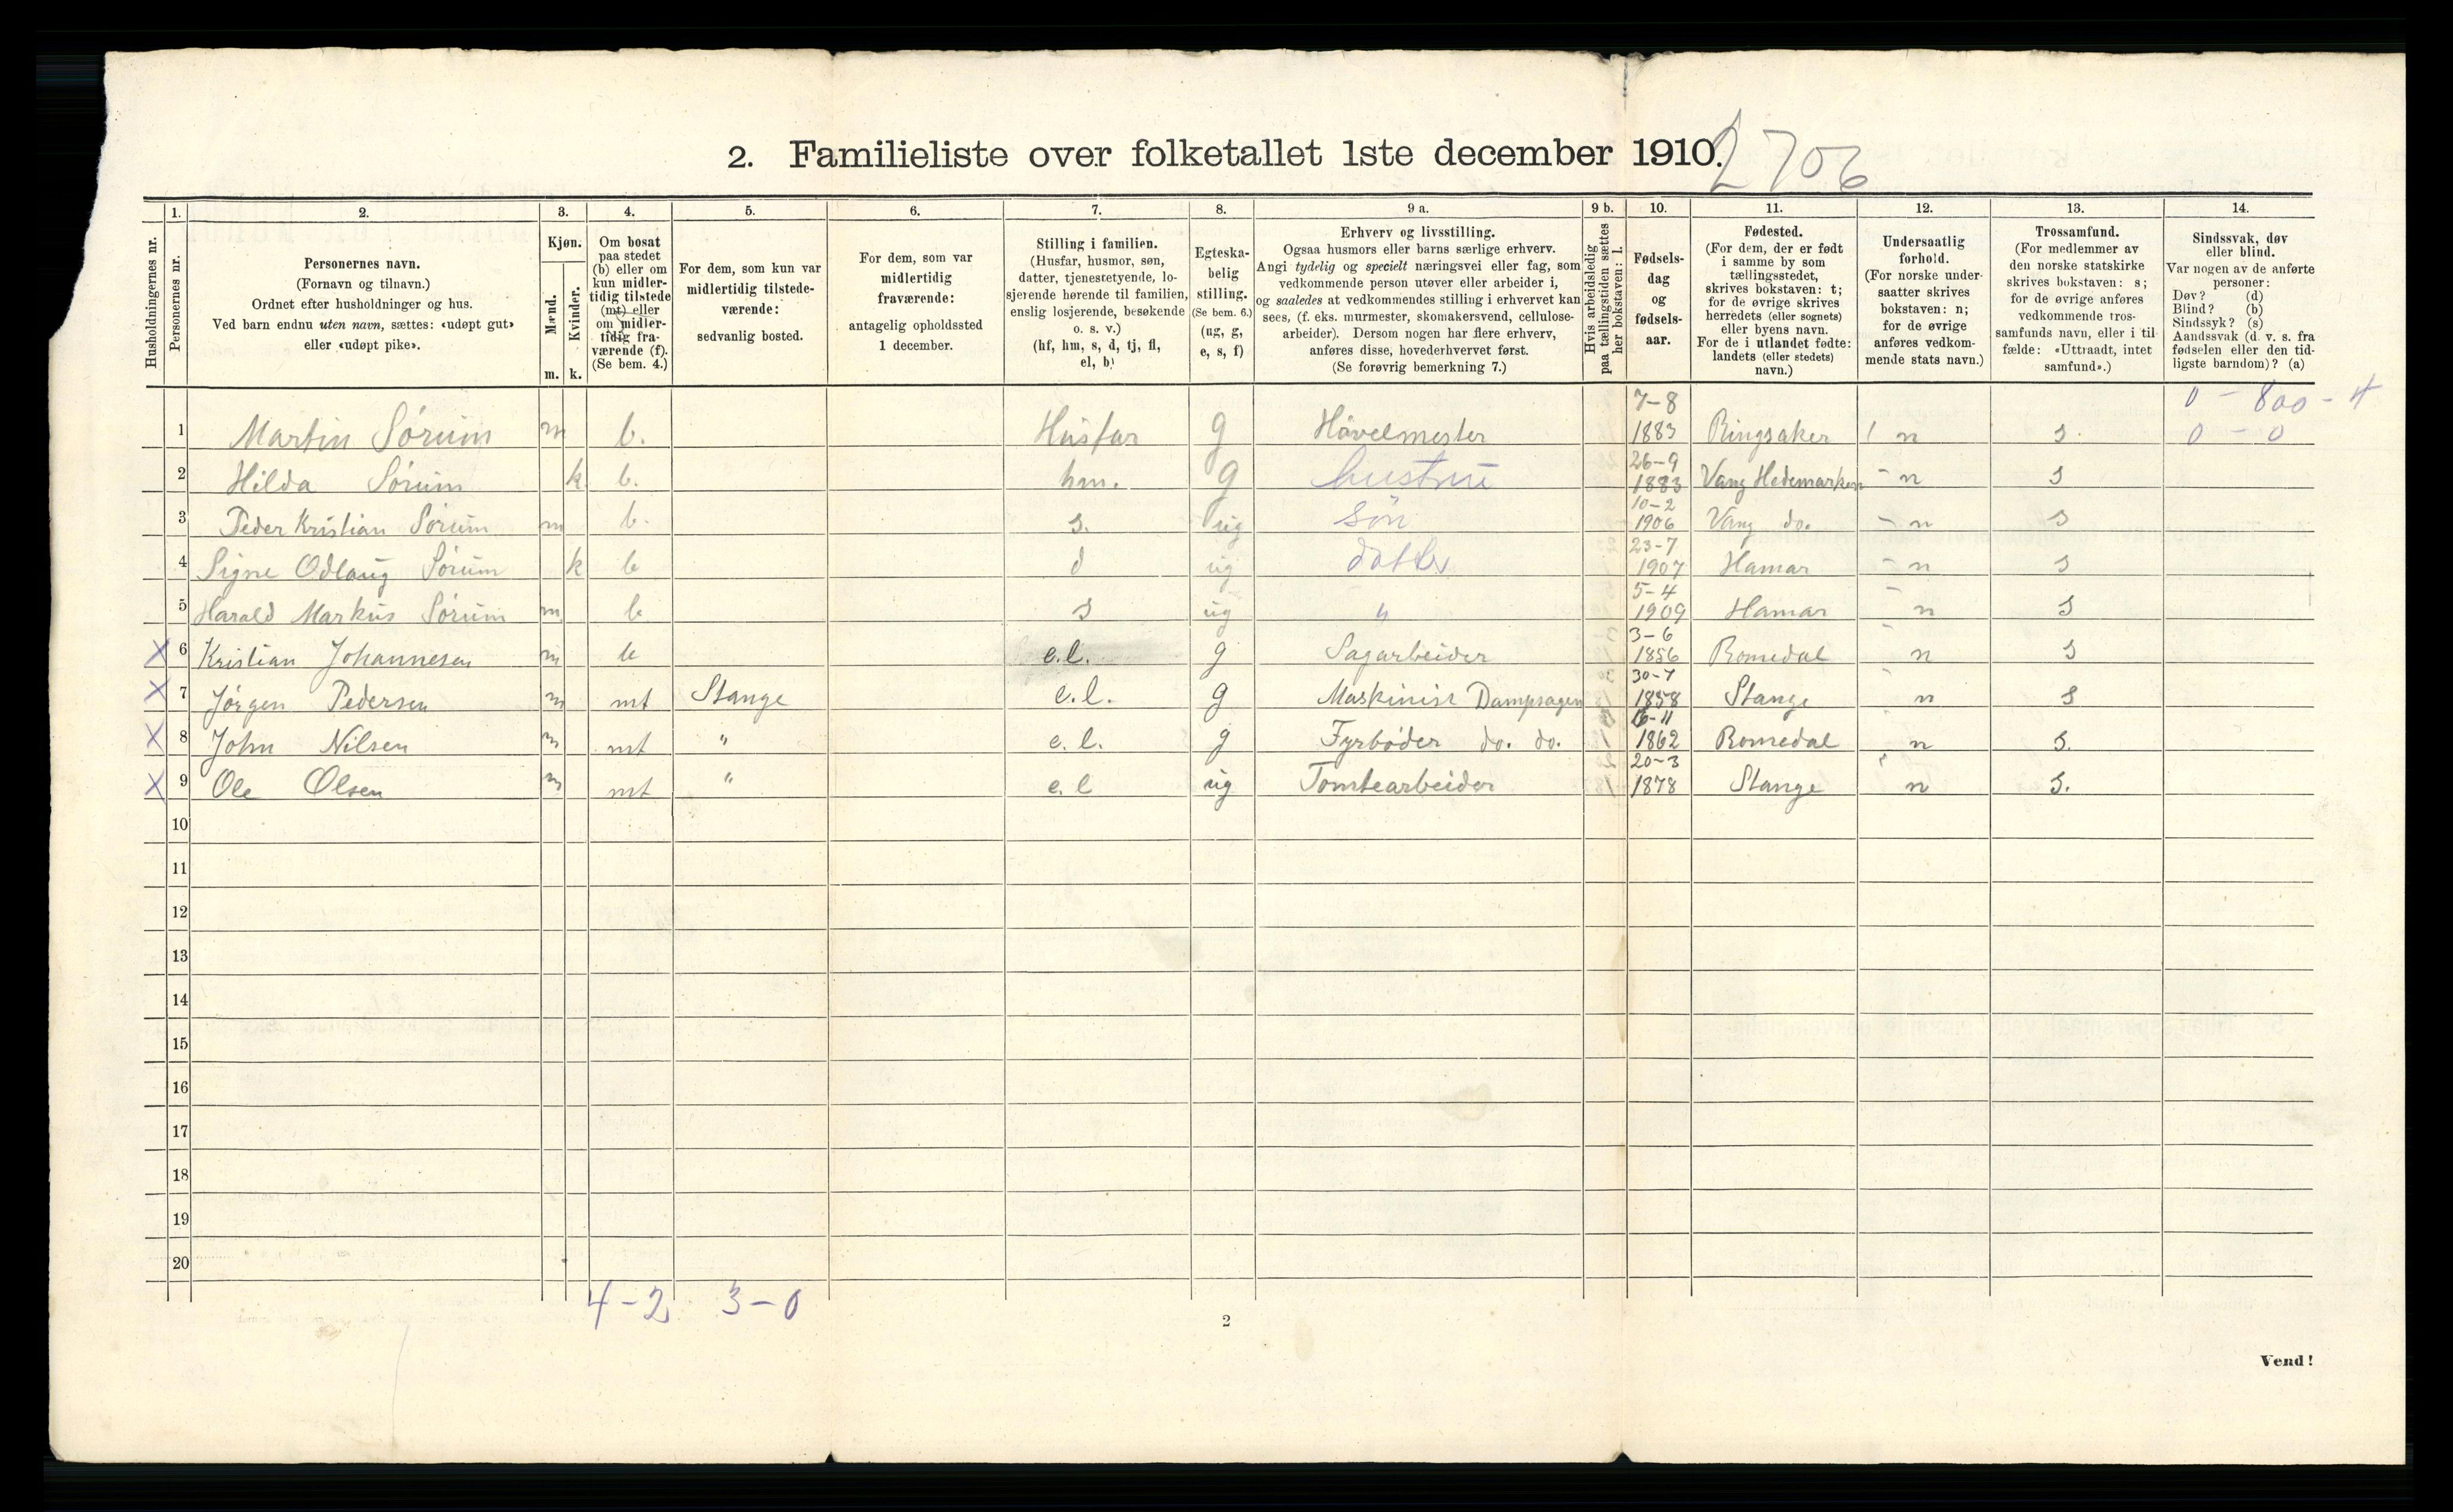 2. Familieliste over folketallet 1ste december 1910.
2706
1. 2. 3. 4. 5. 6. 7. 8. 9 a. 9 b. 10. 11. 12. 13. 14.
Husholdningernes nr.
Personernes nr.
Personernes navn.
(Fornavn og tilnavn.)
Ordnet efter husholdninger og hus.
Ved barn endnu uten navn, sættes: «udøpt gut»
eller «udøpt pike».
Kjøn.
Mænd.
Kvinder.
m. k.
Om bosat
paa stedet
(b) eller om
kun midler-
tidig tilstede
(mt) eller
om midler-
tidig fra-
værende (f).
(Se bem. 4.)
For dem, som kun var
midlertidig tilstede-
værende:
sedvanlig bosted.
For dem, som var
midlertidig
fraværende:
antagelig opholdssted
1 december.
Stilling i familien.
(Husfar, husmor, søn,
datter, tjenestetyende, lo-
sjerende hørende til familien,
enslig losjerende, besøkende
o. s. v.)
(hf, hm, s, d, tj, fl,
el, b)
Egteska-
belig
stilling.
(Se bem. 6.)
(ug, g,
e, s, f)
Erhverv og livsstilling.
Ogsaa husmors eller barns særlige erhverv.
Angi tydelig og specielt næringsvei eller fag, som
vedkommende person utøver eller arbeider i,
og saaledes at vedkommendes stilling i erhvervet kan
sees, (f. eks. murmester, skomakersvend, cellulose-
arbeider). Dersom nogen har flere erhverv,
anføres disse, hovederhvervet først.
(Se forøvrig bemerkning 7.)
Hvis arbeidsledig
paa tællingstiden sættes
her bokstaven: l.
Fødsels-
dag
og
fødsels-
aar.
Fødested.
(For dem, der er født
i samme by som
tællingsstedet,
skrives bokstaven: t;
for de øvrige skrives
herredets (eller sognets)
eller byens navn.
For de i utlandet fødte:
landets (eller stedets)
navn.)
Undersaatlig
forhold.
(For norske under-
saatter skrives
bokstaven: n;
for de øvrige
anføres vedkom-
mende stats navn.)
Trossamfund.
(For medlemmer av
den norske statskirke
skrives bokstaven: s;
for de øvrige anføres
vedkommende tros-
samfunds navn, eller i til-
fælde: «Uttraadt, intet
samfund».)
Sindssvak, døv
eller blind.
Var nogen av de anførte
personer:
Døv? (d)
Blind? (b)
Sindssyk? (s)
Aandssvak (d. v. s. fra
fødselen eller den tid-
ligste barndom)? (a)
0 - 800 - 4
1 Martin Sørum m b. Husfar g Høvelmester 7-8 1883 Ringsaker n s. 0 - 0
2 Hilda Sørum k. b. hm. g hustru 26-9 1883 Vang Hedemarken n s
3 Peder Kristian Sørum m b. s. ug søn 10-2 1906 Vang do. n s
4 Signe Odlaug Sørum k b d ug datter 23-7 1907 Hamar n s
5 Harald Markus Sørum m b s ug " 5-4 1909 Hamar n s
X 6 Kristian Johannesen m b e.l. g Sagarbeider 3-6 1856 Romedal n s
X 7 Jørgen Pedersen m mt Stange e.l. g Maskinist Dampsagen 30-7 1858 Stange n s
X 8 John Nilsen m mt " e.l. g Fyrbøder do. do. 16-11 1862 Romedal n s.
X 9 Ole Olsen m mt " e.l ug Tomtearbeider 20-3 1878 Stange n s.
10
11
12
13
14
15
16
17
18
19
20
4-2 3-0
2
Vend!